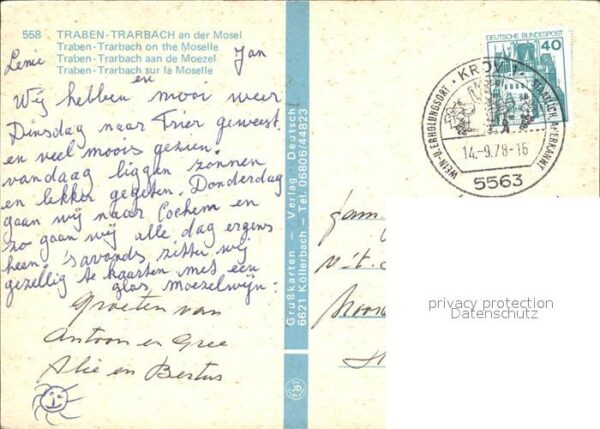 558 TRABEN-TRARBACH an der Mosel
Traben-Trarbach on the Moselle
Traben-Trarbach aan de Moezel
Traben-Trarbach sur la Moselle
Lenie en Jan
Wij hebben mooi weer
Dinsdag naar Trier geweest
en veel moois gezien.
vandaag liggen zonnen
en lekker gegeten. Donderdag
gaan wij naar Cochem en
zo gaan wij alle dag ergens
heen. 's avonds zitten wij
gezellig te kaarten met een
glas moezelwijn.
Groeten van
Antoon en Gree
Alie en Bertus
Grußkarten – Verlag Deutsch
6621 Köllerbach – Tel. 06806/44823
DEUTSCHE BUNDESPOST
40
KRÖV
WEIN-U-ERHOLUNGSORT
STAATLICH ANERKANNT
14.-9.78-16
5563
Fam.
v.'t.
privacy protection
Datenschutz